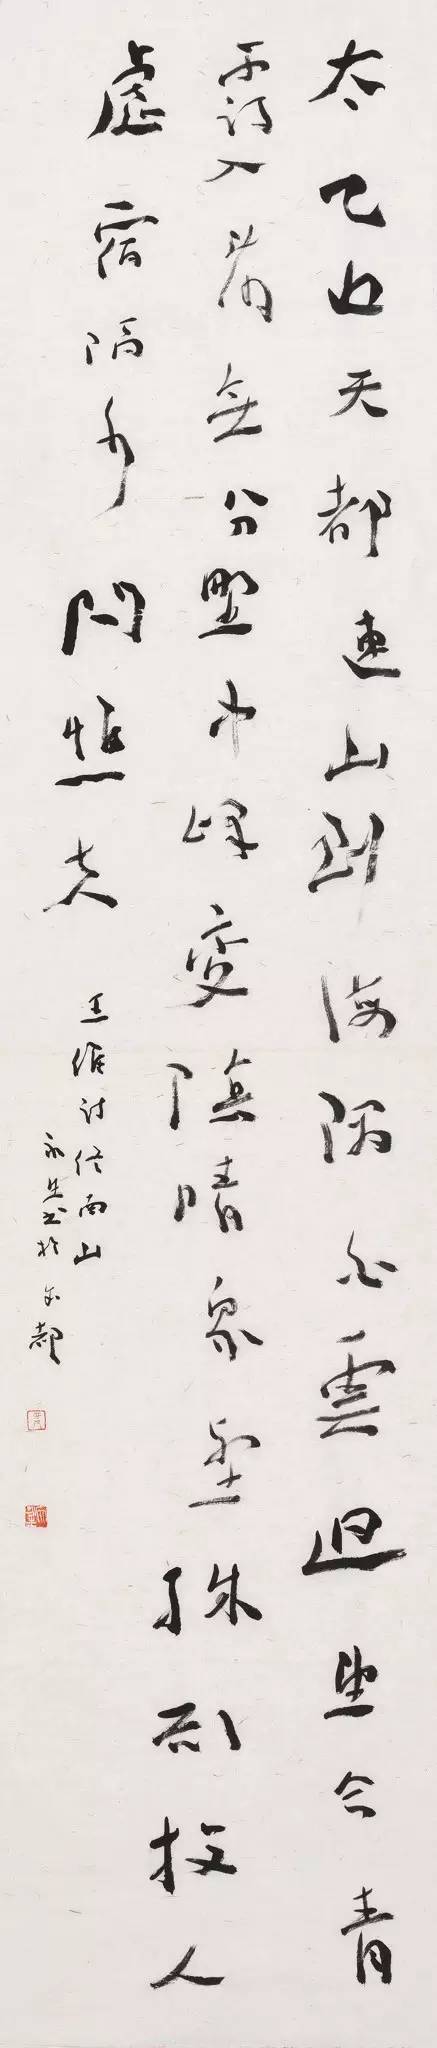 太乙近天都連山到海隅白雲迴望合青
靄入看無分野中峰變陰晴衆壑殊欲投人
處宿隔水問樵夫
王維詩終南山
書於 都